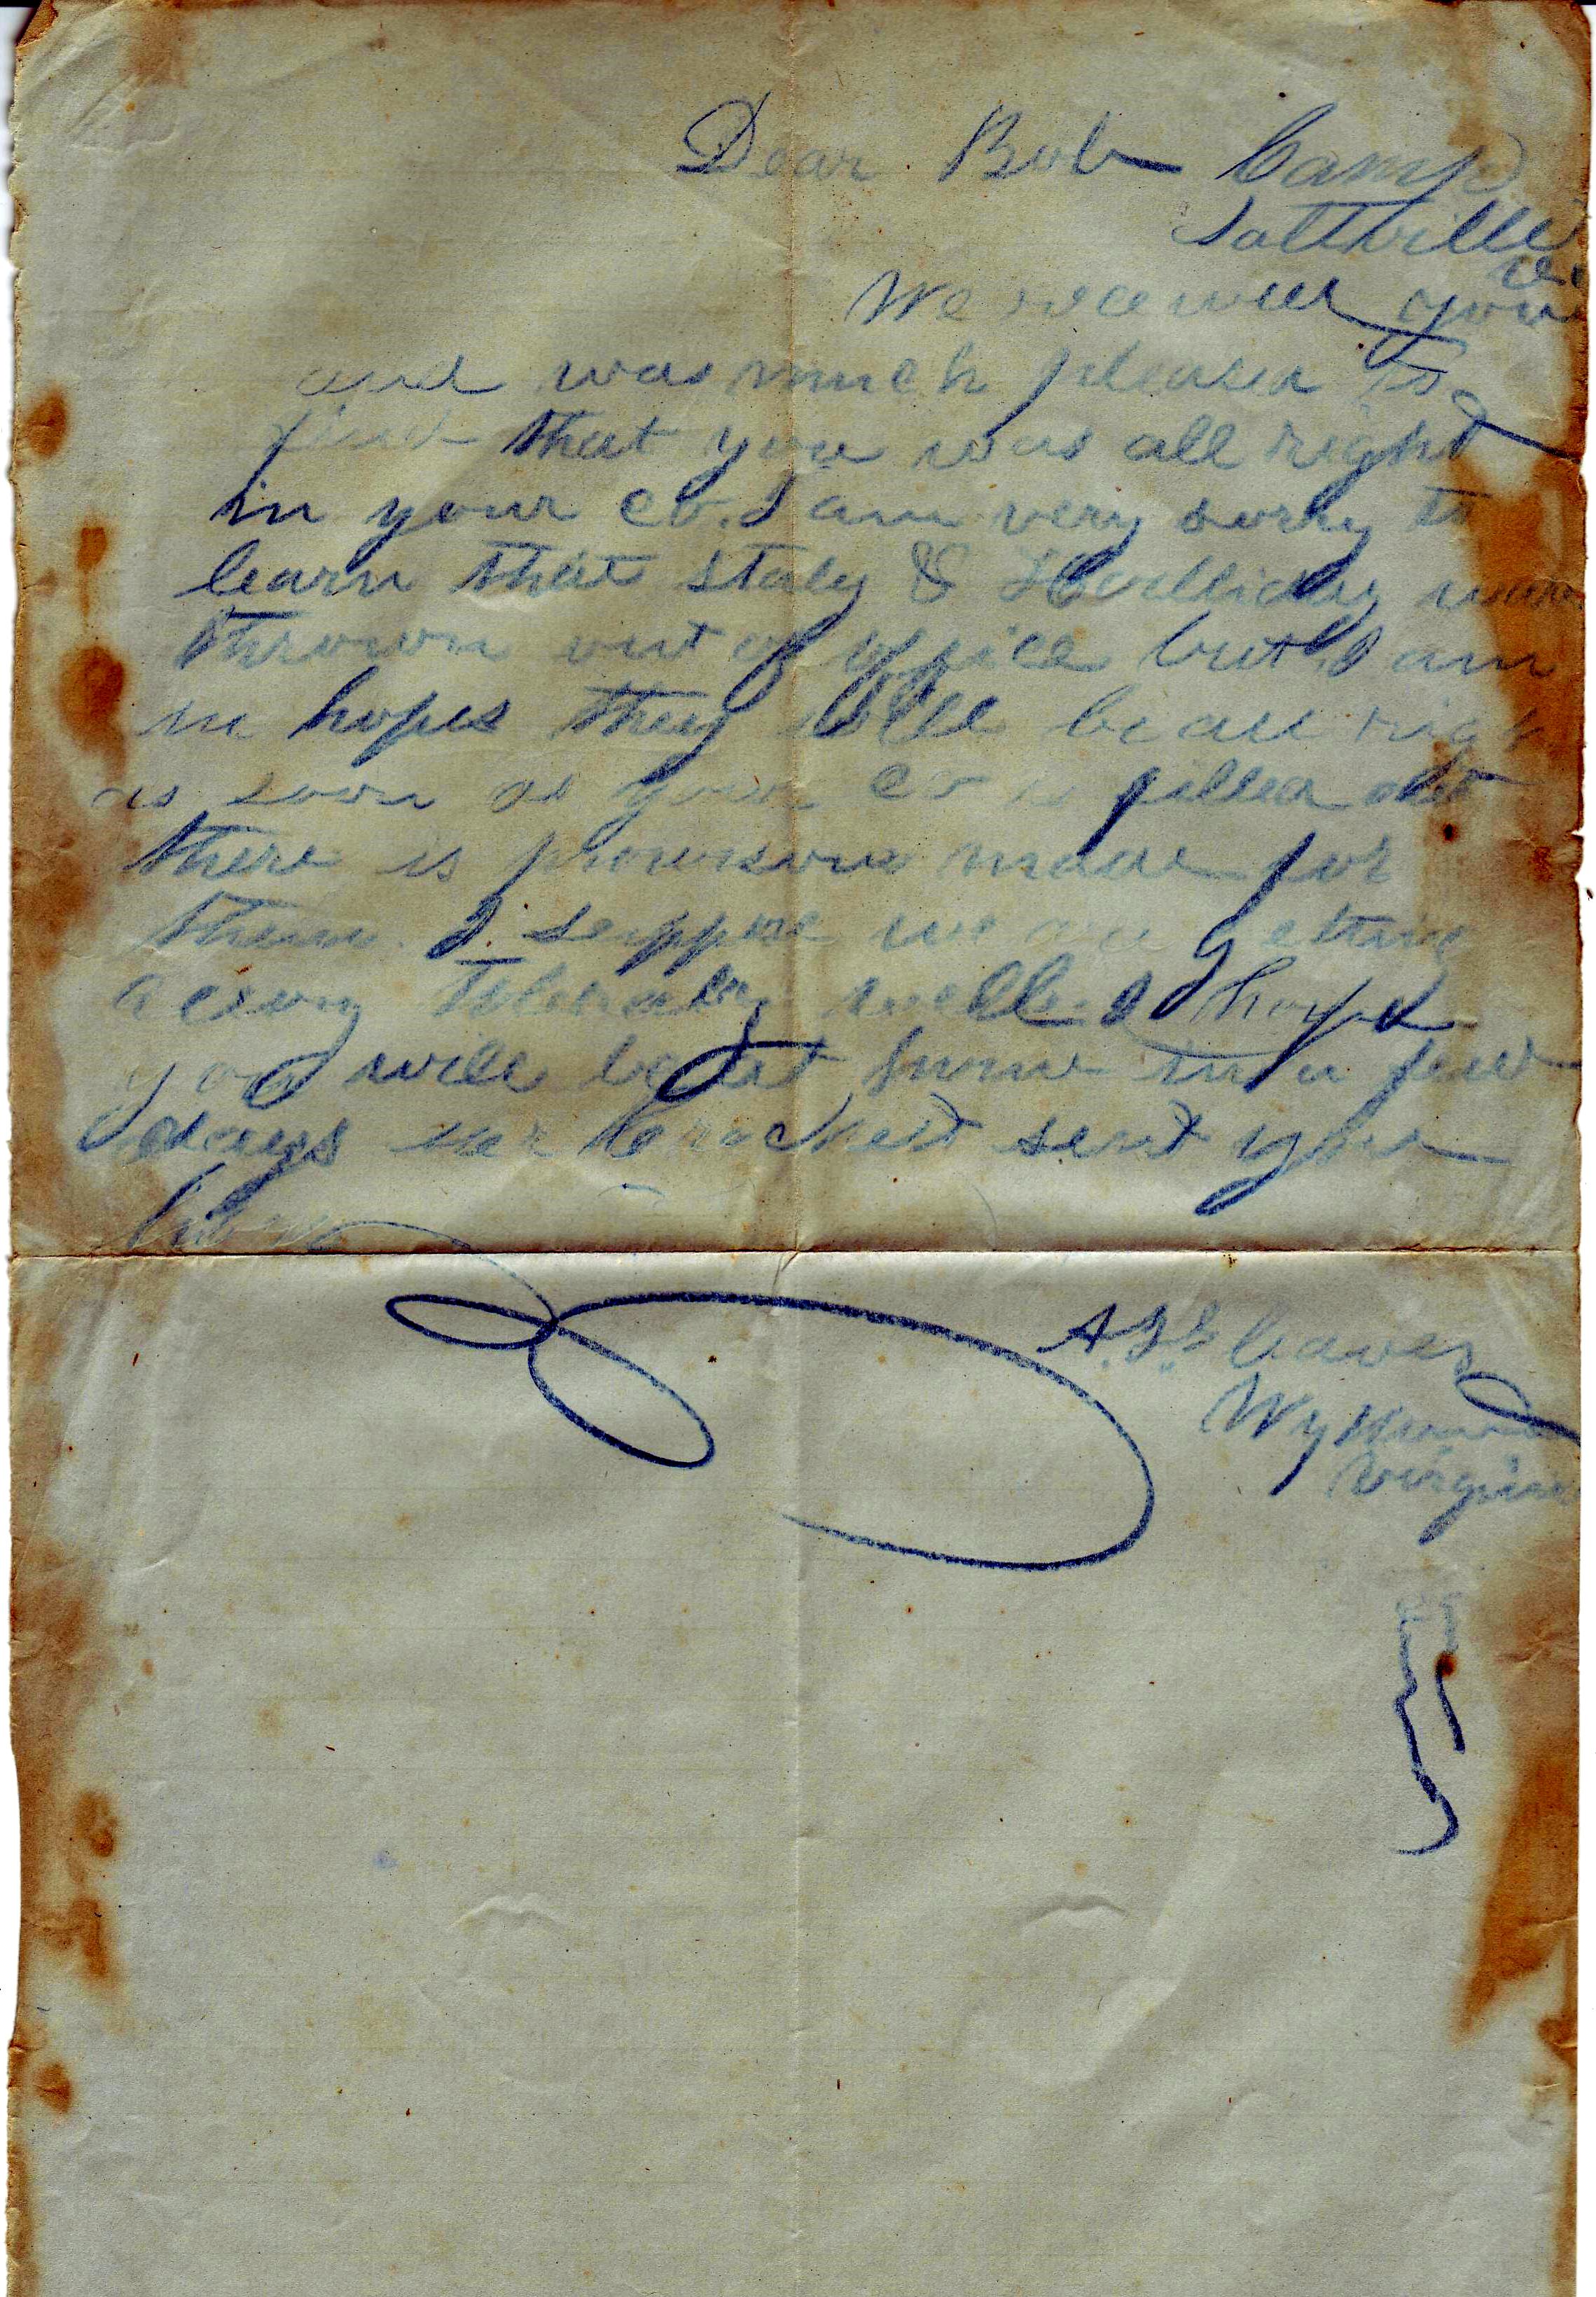 Dear Bob Camp
Saltville
Va
We received your
and was much pleased to
find that you was all right
in your co. I am very sorry to
learn that Staly & Halliday was
thrown out of office but I am
in hopes they will be all righ
as soon as your co is filled
there is provision made for
them. I suppose we are getting
along tolerably well I hope
you will be at home in a few
days sent you
A.
Virginia